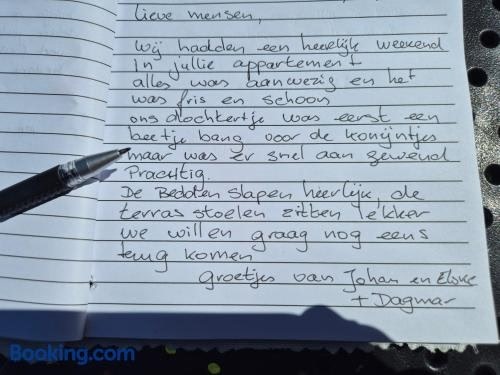 lieve mensen,
Wij hadden een heerlijk weekend
in jullie appartement
alles was aanwezig en het
was fris en schoon
ons dochtertje was eerst een
beetje bang voor de konijntjes
maar was er snel aan gewend
Prachtig.
De Bedden slapen heerlijk, de
terras stoelen zitten lekker
we willen graag nog eens
terug komen
groetjes van Johan en
+ Dagmar
Booking.com